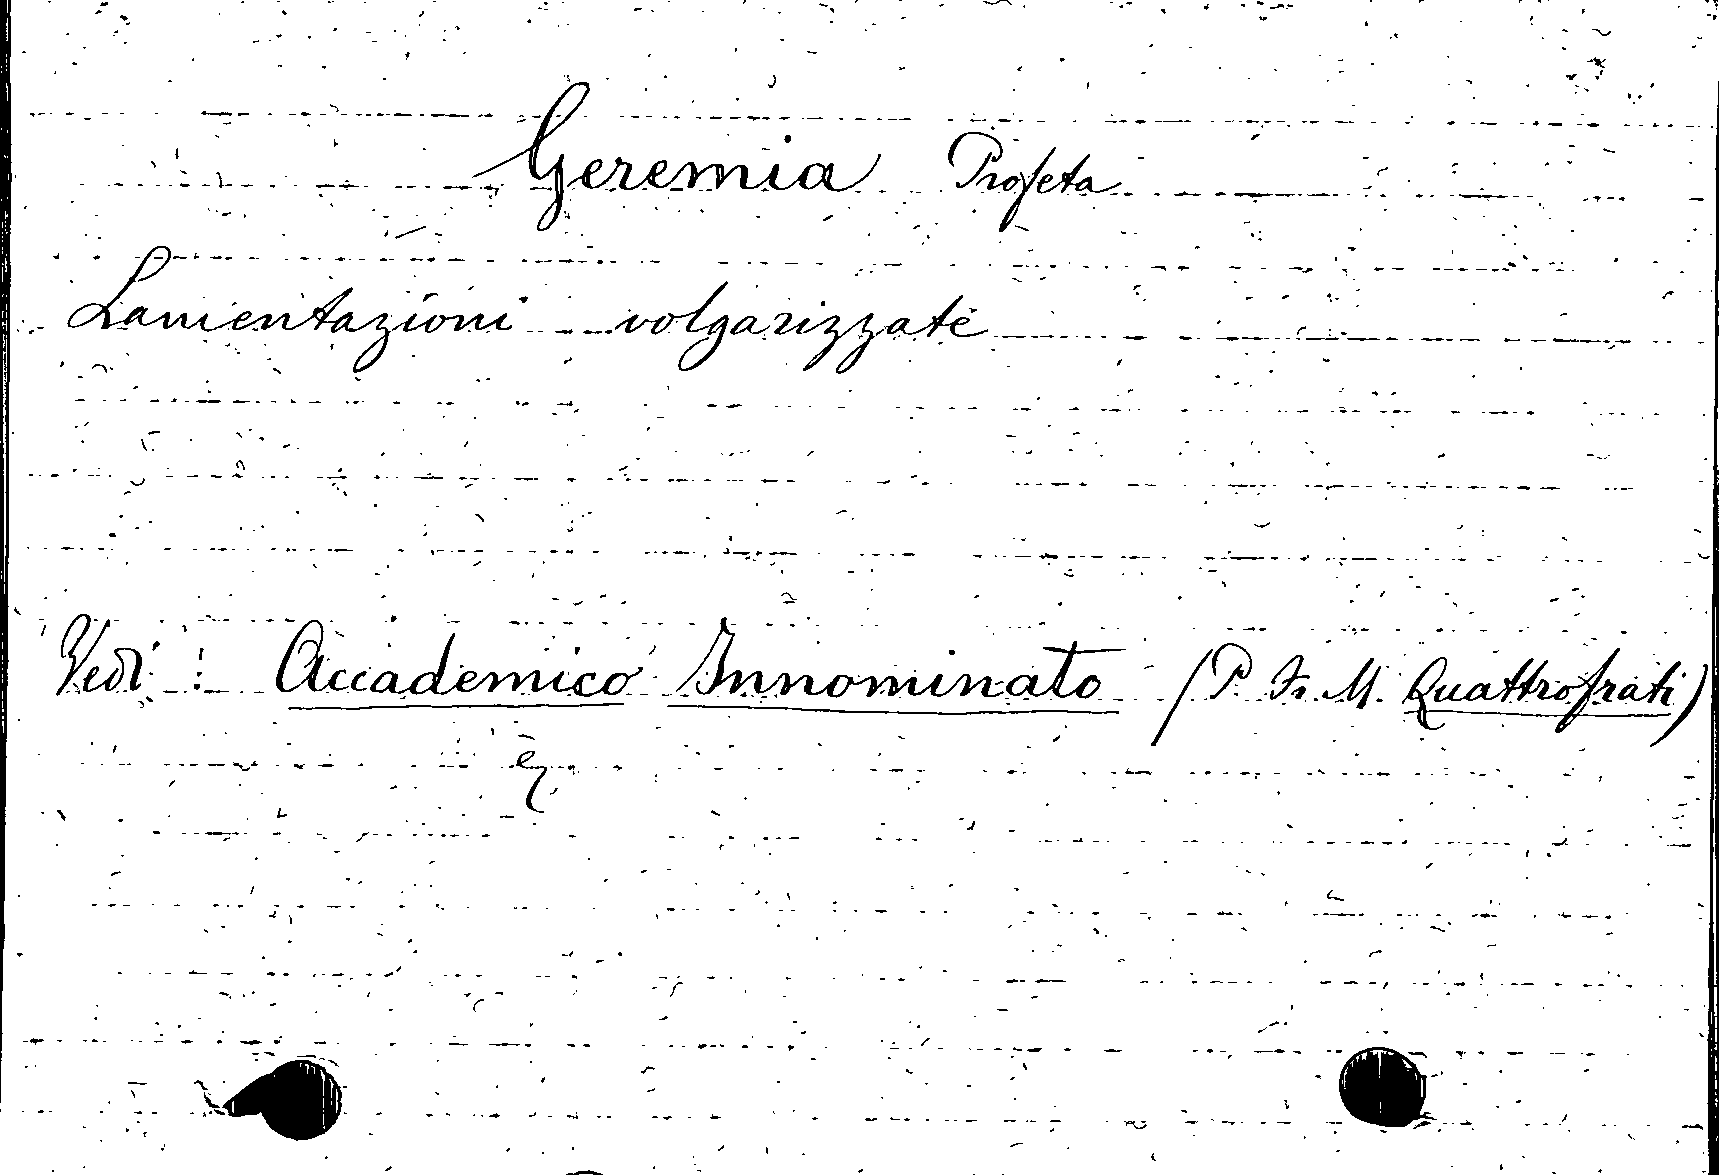 Geremia Profeta
Lamentazioni volgarizzate
Vedi: Accademico Innominato (P. Fr. M. Quattrofrati)